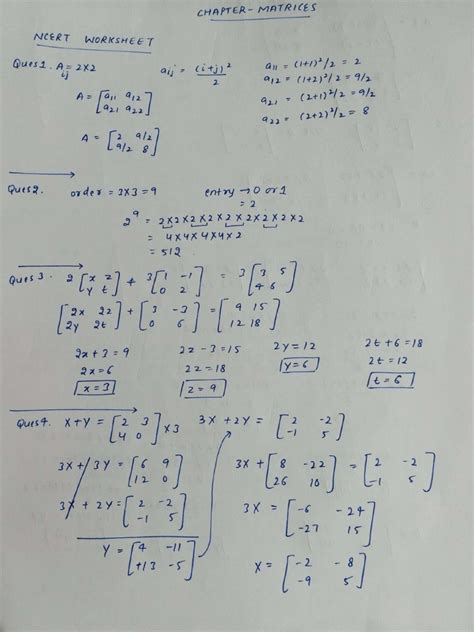 CHAPTER - MATRICES
NCERT WORKSHEET
Ques1. A = 2x2
ij
aij = (i+j)²/2
a11 = (1+1)²/2 = 2
a12 = (1+2)²/2 = 9/2
a21 = (2+1)²/2 = 9/2
a22 = (2+2)²/2 = 8
A = [a11 a12
a21 a22]
A = [2 9/2
9/2 8]
Ques2. order = 3x3 = 9 entry → 0 or 1
= 2
2⁹ = 2x2x2x2x2x2x2x2x2
= 4x4x4x4x2
= 512
Ques 3. 2[x z
y t] + 3[1 -1
0 2] = 3[3 5
4 6]
[2x 2z
2y 2t] + [3 -3
0 6] = [9 15
12 18]
2x + 3 = 9
2x = 6
x = 3
2z - 3 = 15
2z = 18
z = 9
2y = 12
y = 6
2t + 6 = 18
2t = 12
t = 6
Ques4. x+y = [2 3
4 0] x3
3x + 3y = [6 9
12 0]
3x + 2y = [2 -2
-1 5]
y = [4 -11
+13 -5]
3x + 2y = [2 -2
-1 5]
3x + [8 -22
26 10] = [2 -2
-1 5]
3x = [-6 -24
-27 15]
x = [-2 -8
-9 5]